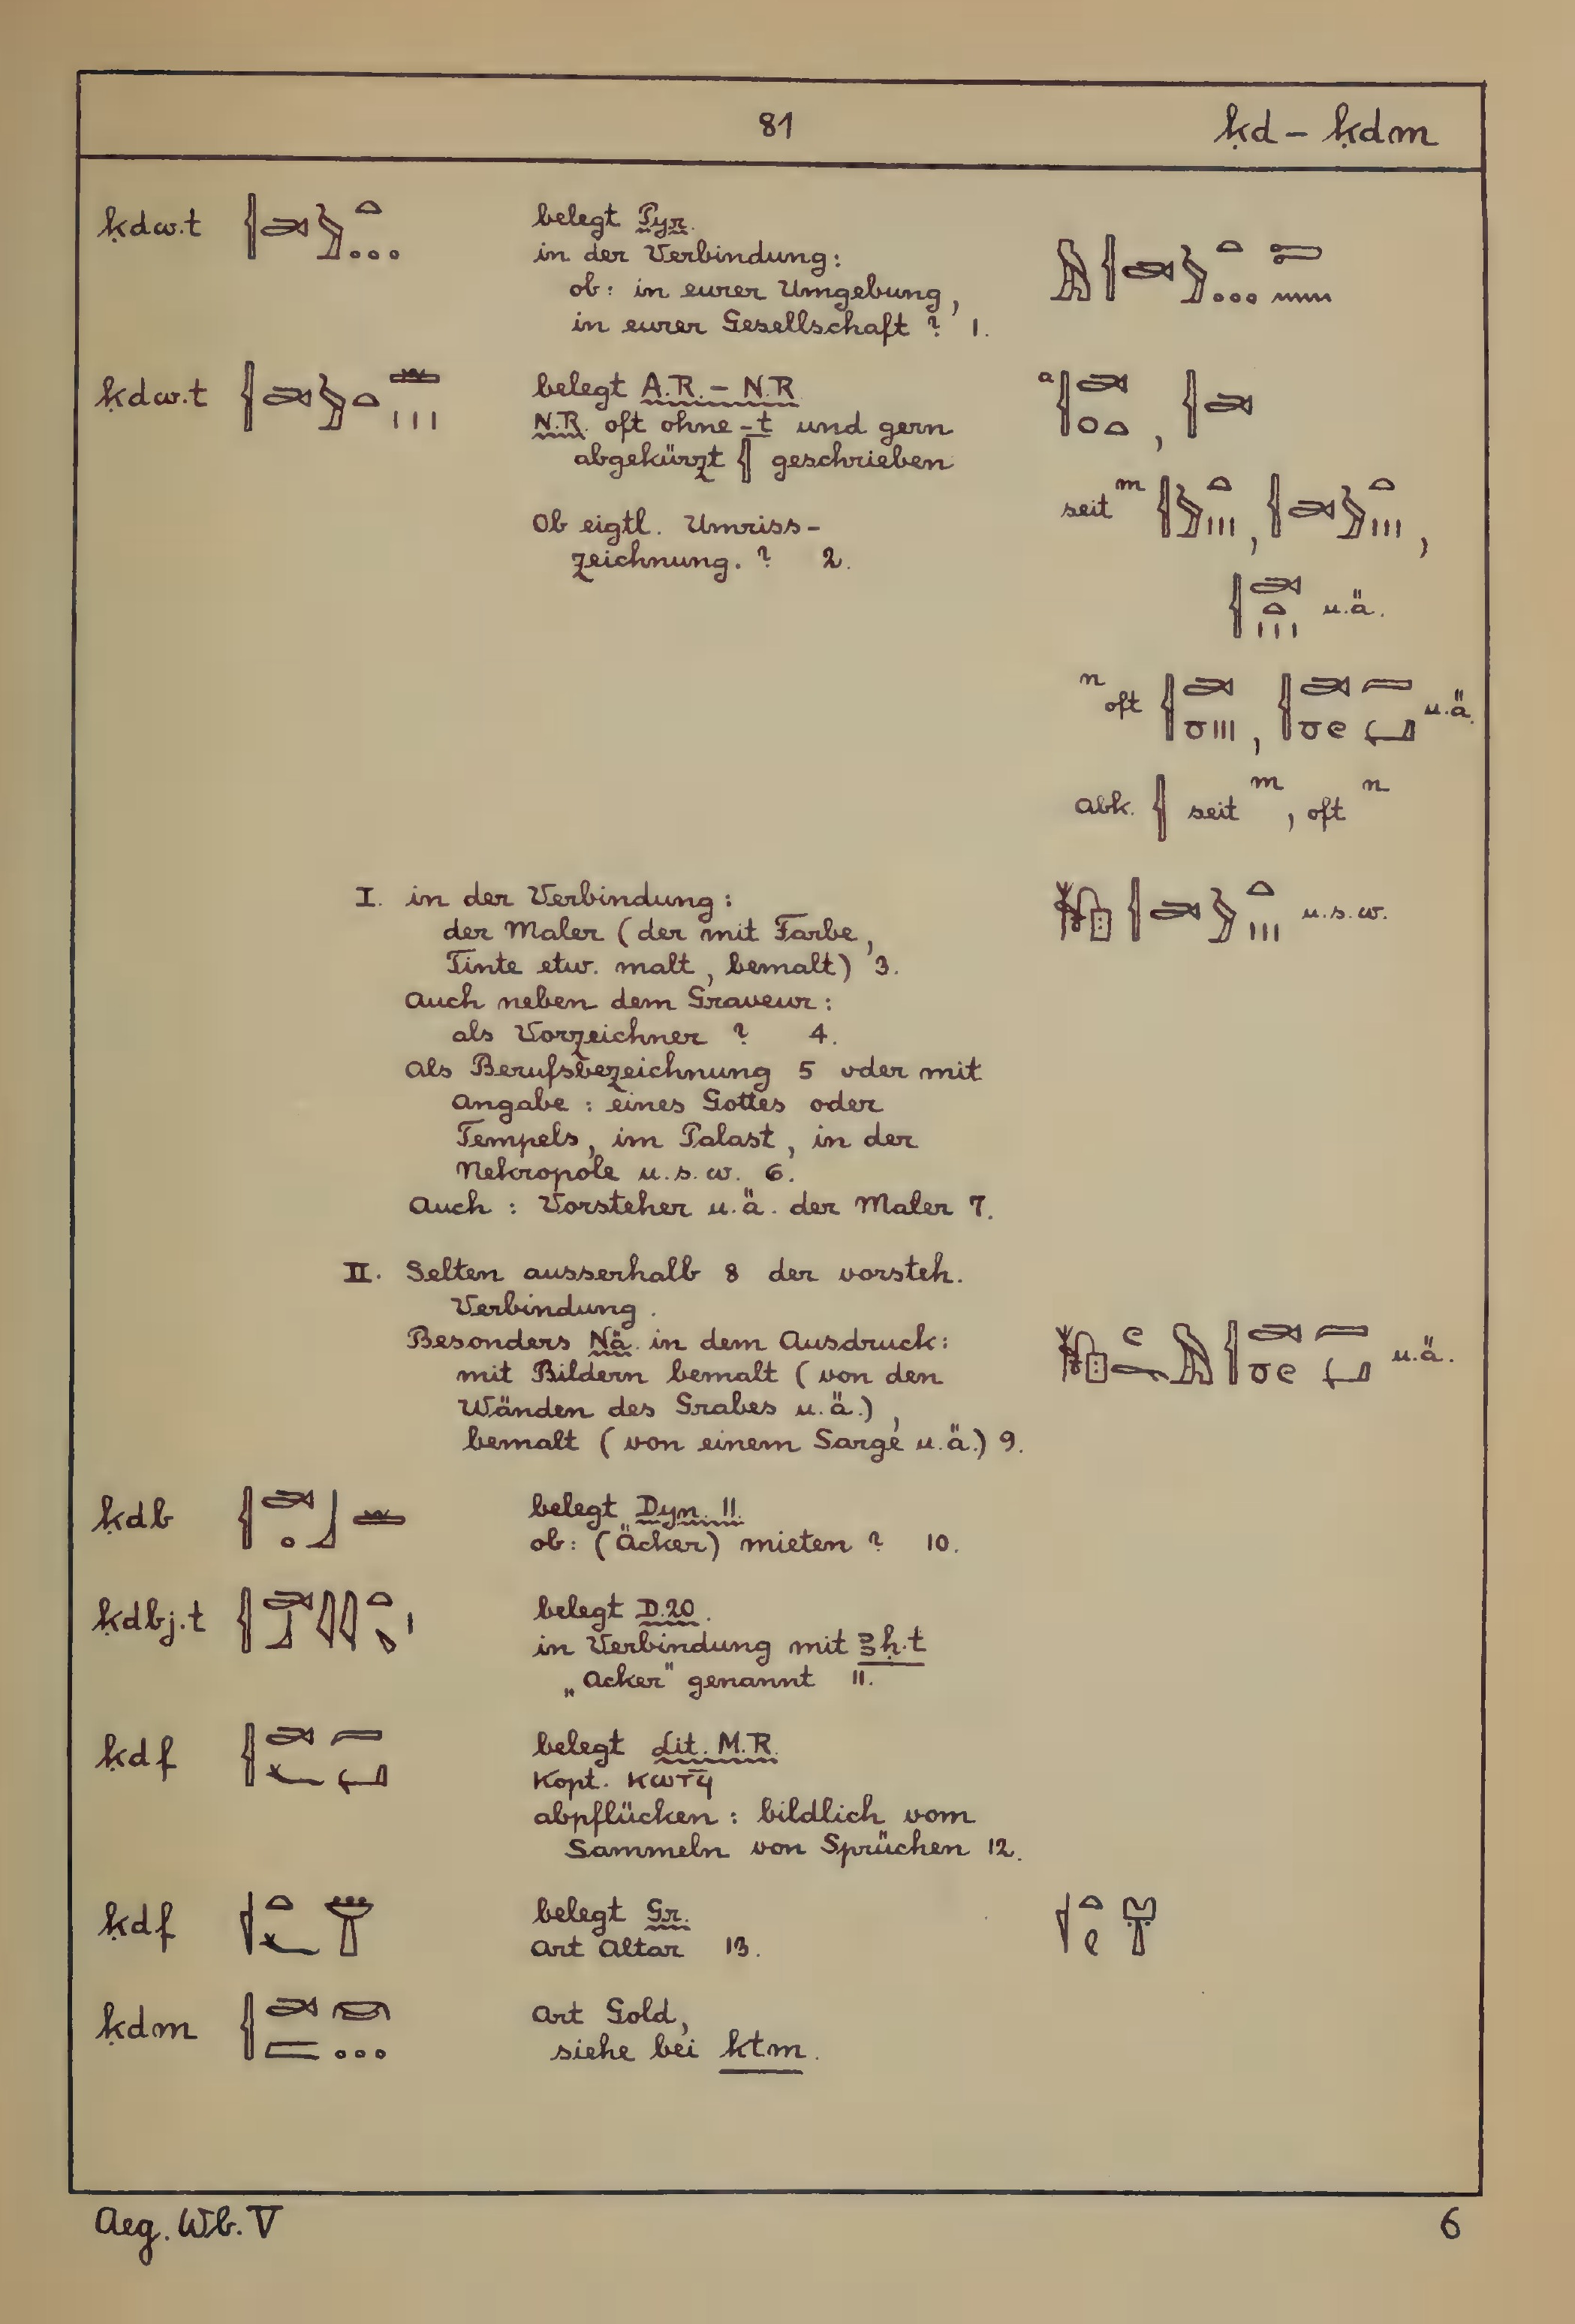 81
ḳd – ḳdm
ḳdw.t
belegt Pyr.
in der Verbindung:
ob: in eurer Umgebung,
in eurer Gesellschaft ? 1.
ḳdw.t
belegt A.R. – N.R.
N.R. oft ohne -t und gern
abgekürzt geschrieben
Ob eigtl. Umriss-
zeichnung. ? 2.
a ,
seit m , ,
u.ä.
n oft , u.ä.
abk. seit m, oft n
I. in der Verbindung: u.s.w.
der Maler (der mit Farbe,
Tinte etw. malt, bemalt) 3.
Auch neben dem Graveur:
als Vorzeichner ? 4.
Als Berufsbezeichnung 5 oder mit
Angabe: eines Gottes oder
Tempels, im Palast, in der
Nekropole u.s.w. 6.
Auch: Vorsteher u.ä. der Maler 7.
II. Selten ausserhalb 8 der vorsteh.
Verbindung.
Besonders Nä. in dem Ausdruck: u.ä.
mit Bildern bemalt (von den
Wänden des Grabes u.ä.),
bemalt (von einem Sarge u.ä.) 9.
ḳdb
belegt Dyn. 11.
ob: (Äcker) mieten ? 10.
ḳdbj.t
belegt D.20.
in Verbindung mit ꜣḥ.t
„Acker" genannt 11.
ḳdf
belegt Lit. M.R.
Kopt. ⲕⲱⲧϥ̄
abpflücken: bildlich vom
Sammeln von Sprüchen 12.
ḳdf
belegt Gr.
Art Altar 13.
ḳdm
Art Gold,
siehe bei ktm.
Aeg. Wb. V
6